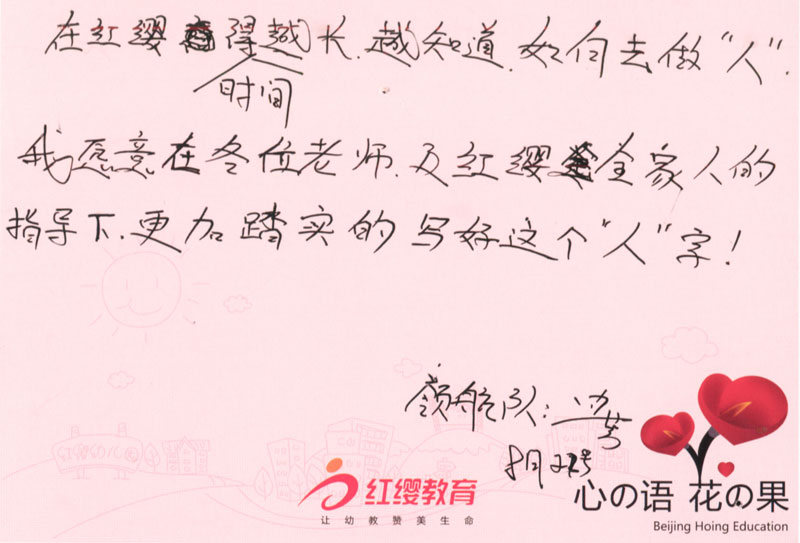 在红缨得越长.越知道.如何去做"人".
时间
我愿意在各位老师.及红缨全家人的
指导下.更加踏实的写好这个"人"字!
领航队:
8月
红缨幼儿园
红缨教育
让幼教赞美生命
心の语 花の果
Beijing Hoing Education